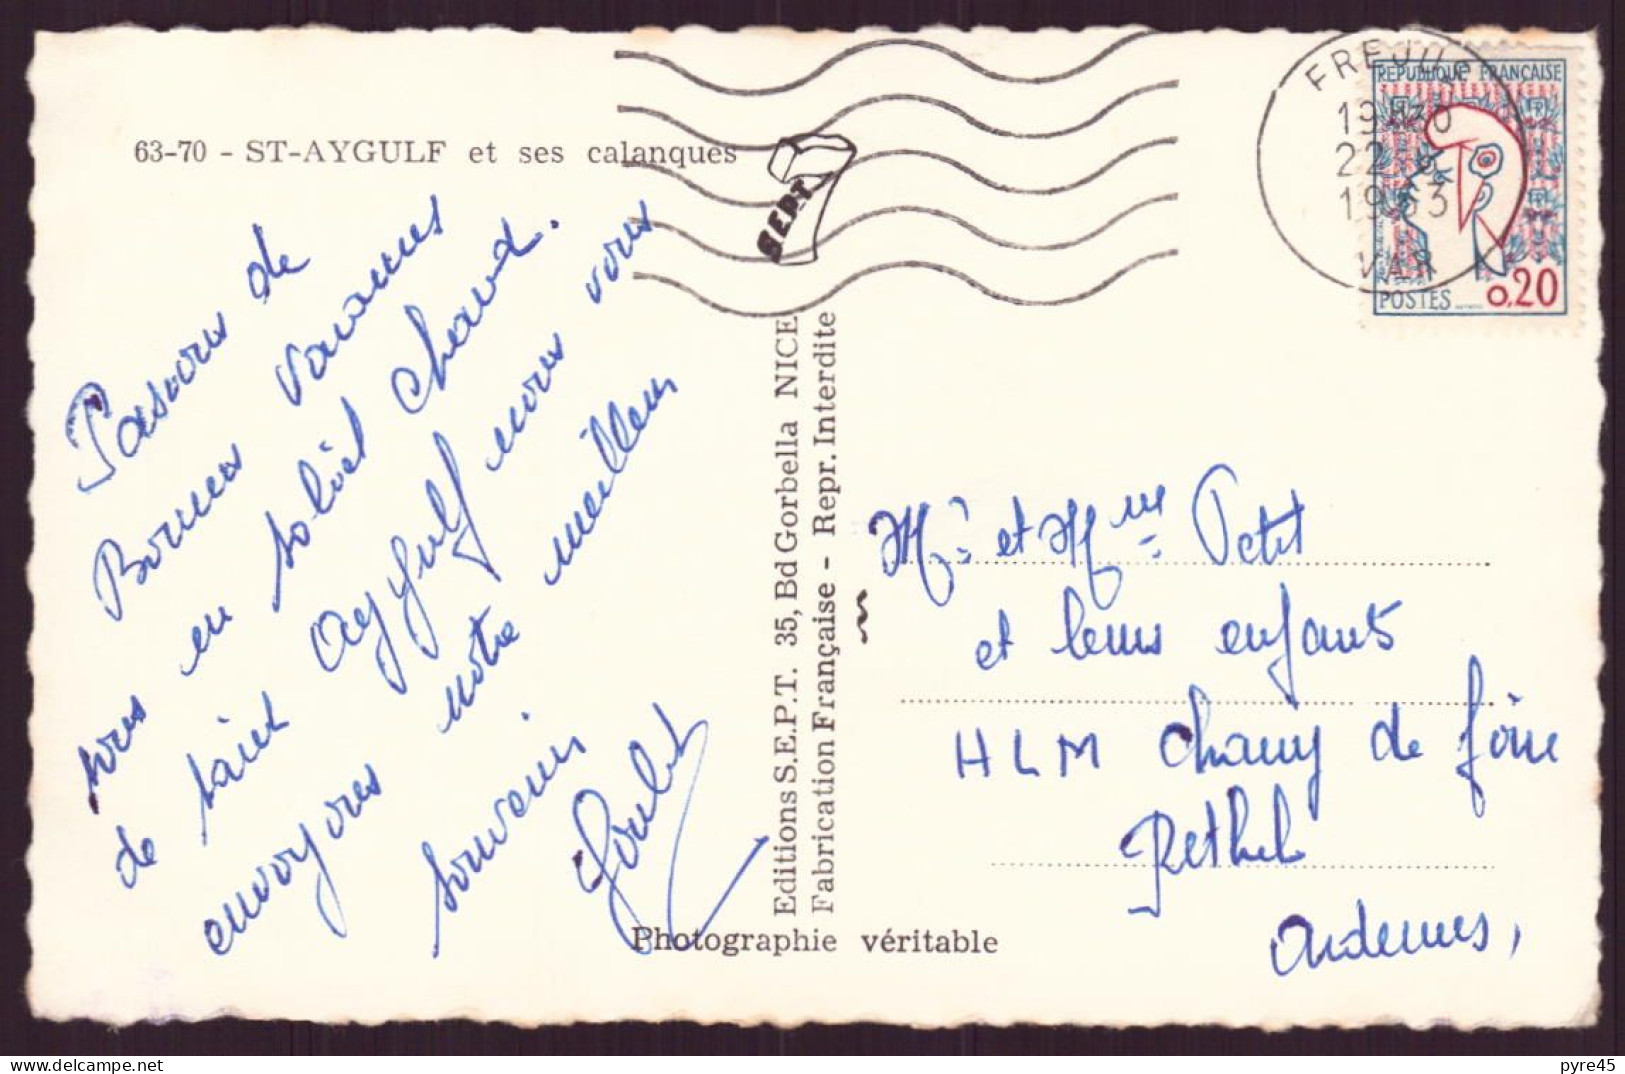 63-70 - ST-AYGULF et ses calanques
Passons de
Bonnes vacances
sous un soleil chaud.
de saint aygulf nous vous
envoyons notre meilleur
souvenir
Goulet
SEPT
Editions S.E.P.T. 35, Bd Gorbella NICE
Fabrication Française - Repr. Interdite
Photographie véritable
FREJUS
19H30
22-8
1963
VAR
REPUBLIQUE FRANÇAISE
POSTES 0,20
Mr et Mme Petit
et leurs enfants
HLM Champ de foire
Rethel
Ardennes,
pyre45